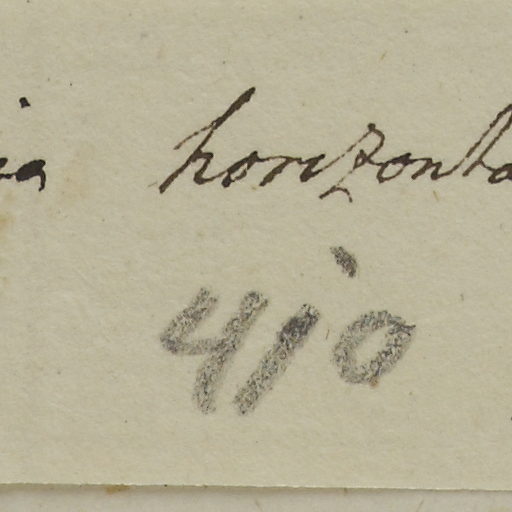 ia horizonta
410